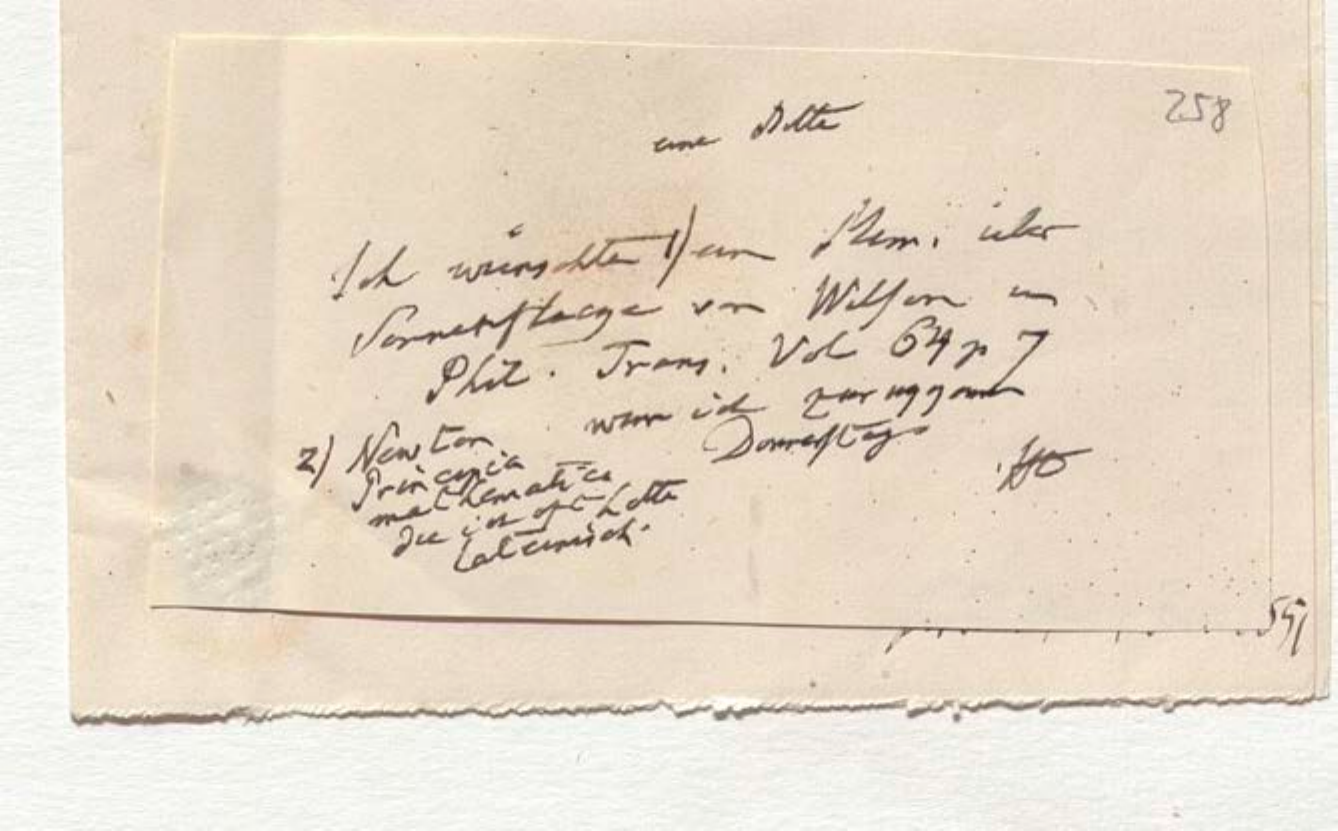 258
eine Bitte
Ich wünschte 1) ein Mem. über
Sonnenflecke von Wilson in
Phil. Trans. Vol 64 p 7
wenn ich zurugg
Donnerstag
2) Newton
Principia
mathematica
die ich oft hatte
lateinisch.